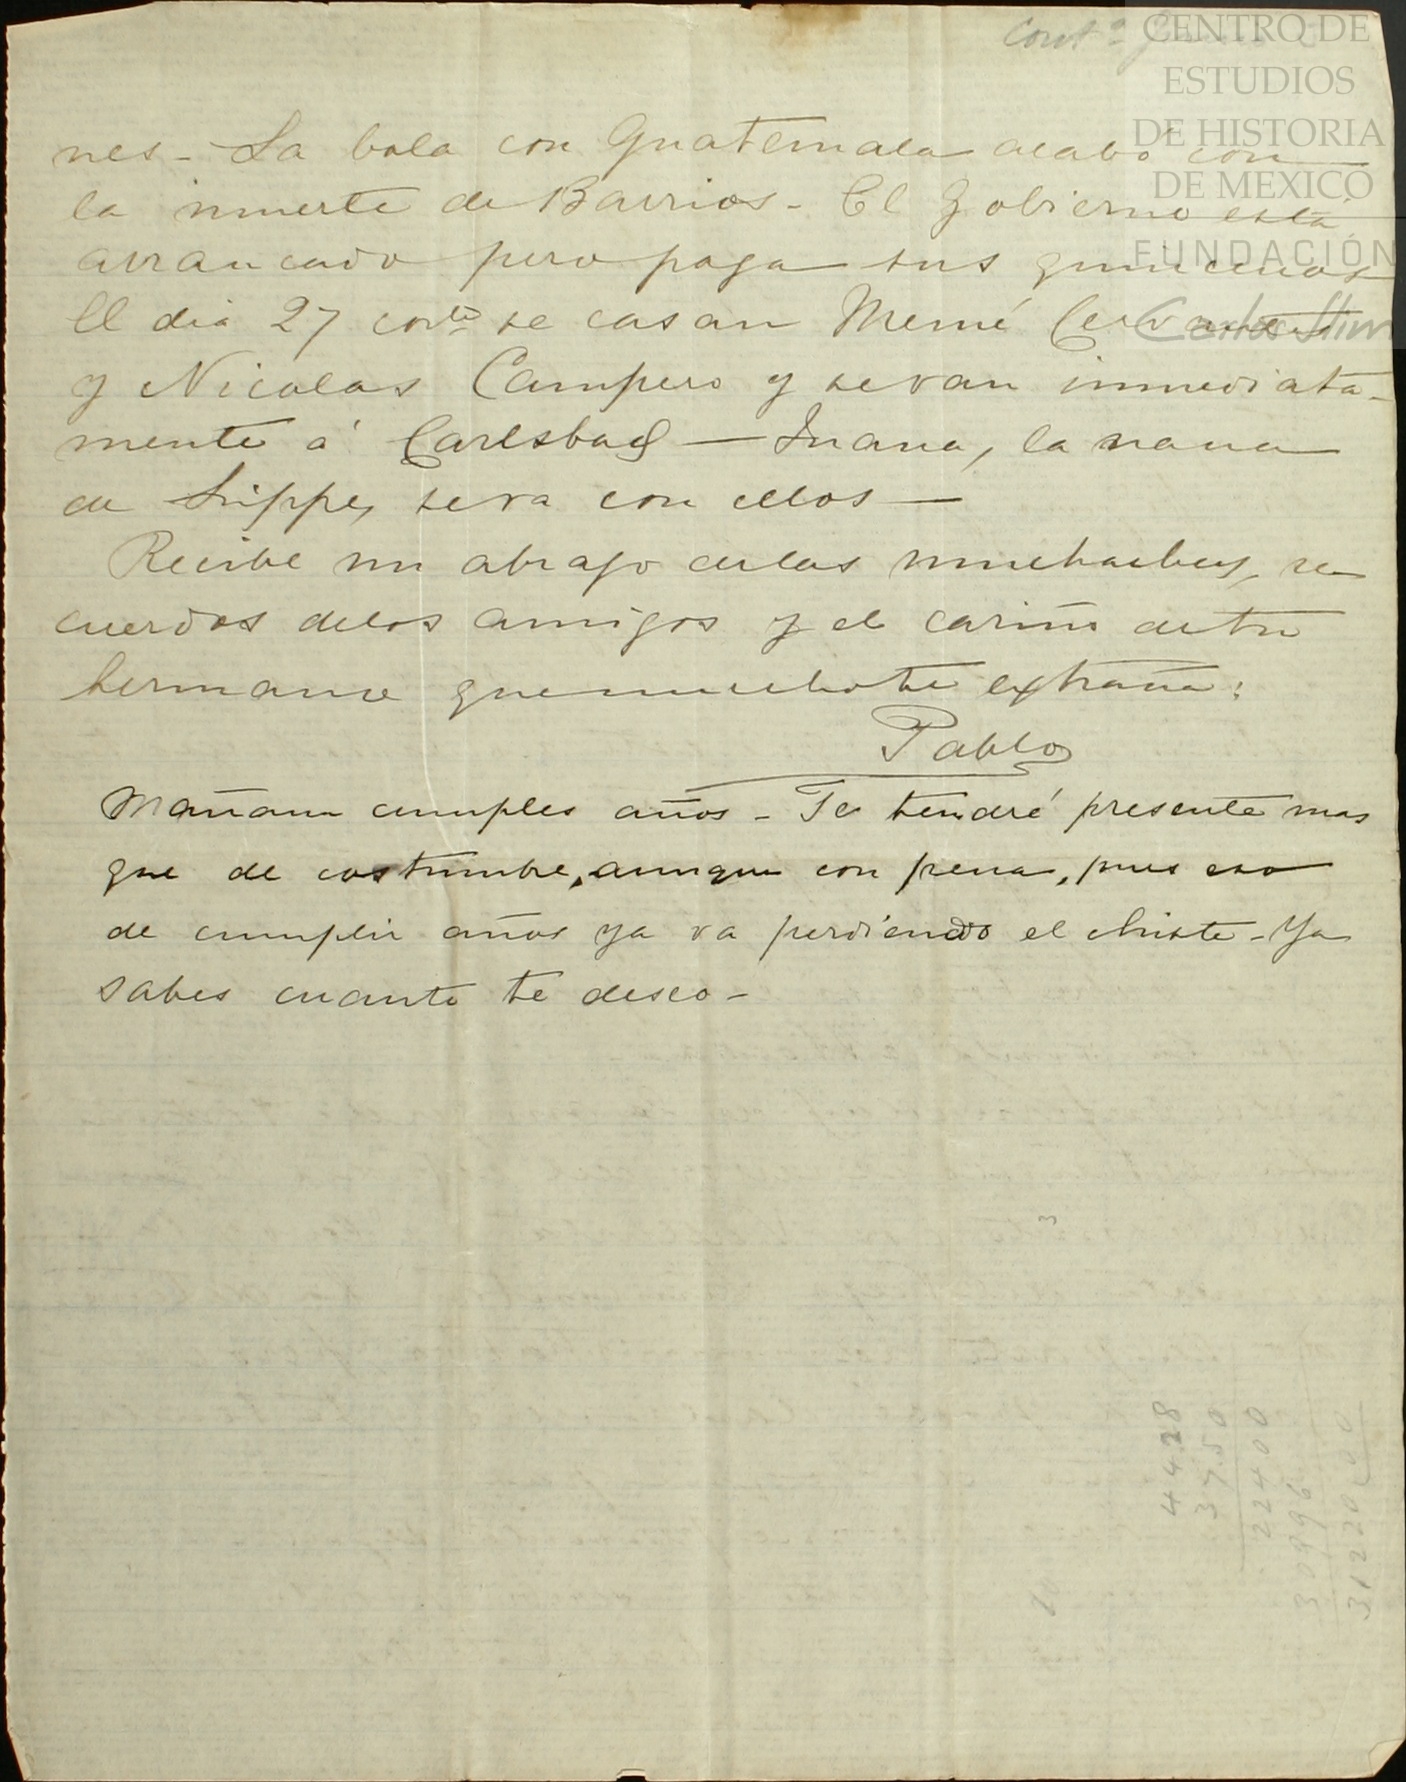 Contº
CENTRO DE
ESTUDIOS
DE HISTORIA
DE MEXICO
FUNDACIÓN
Carlos Slim
nes - La bola con Guatemala acabó con
la muerte de Barrios - El Gobierno está
arrancado pero paga sus quincenas
El dia 27 corte se casan Memé Cervantes
y Nicolas Campero y se van inmediata-
mente á Carlsbad — Juana, la nana
de Lippe, se va con ellos —
Recibe un abrazo de las muchachas, re
cuerdos de los amigos y el cariño de tu
hermano que mucho te extraña:
Pablo
Mañana cumples años - Te tendré presente mas
que de costumbre, aunque con pena, pues eso
de cumplir años ya va perdiendo el chiste - Ya
sabes cuanto te deseo -
4428
37.50
22400
30996
31220,00